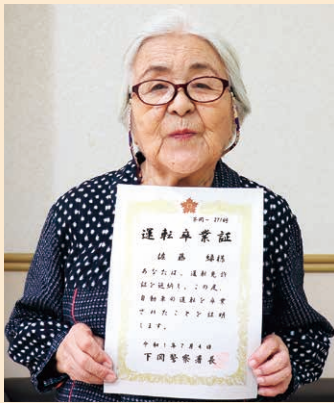 運転卒業証
佐西 緑様
あなたは、運転免許
証を返納し、この度、
自動車の運転を卒業
されたことを証明
します。
令和1年7月4日
下関警察署長